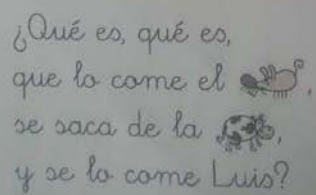 ¿Qué es, qué es,
que lo come el ,
se saca de la ,
y se lo come Luis?